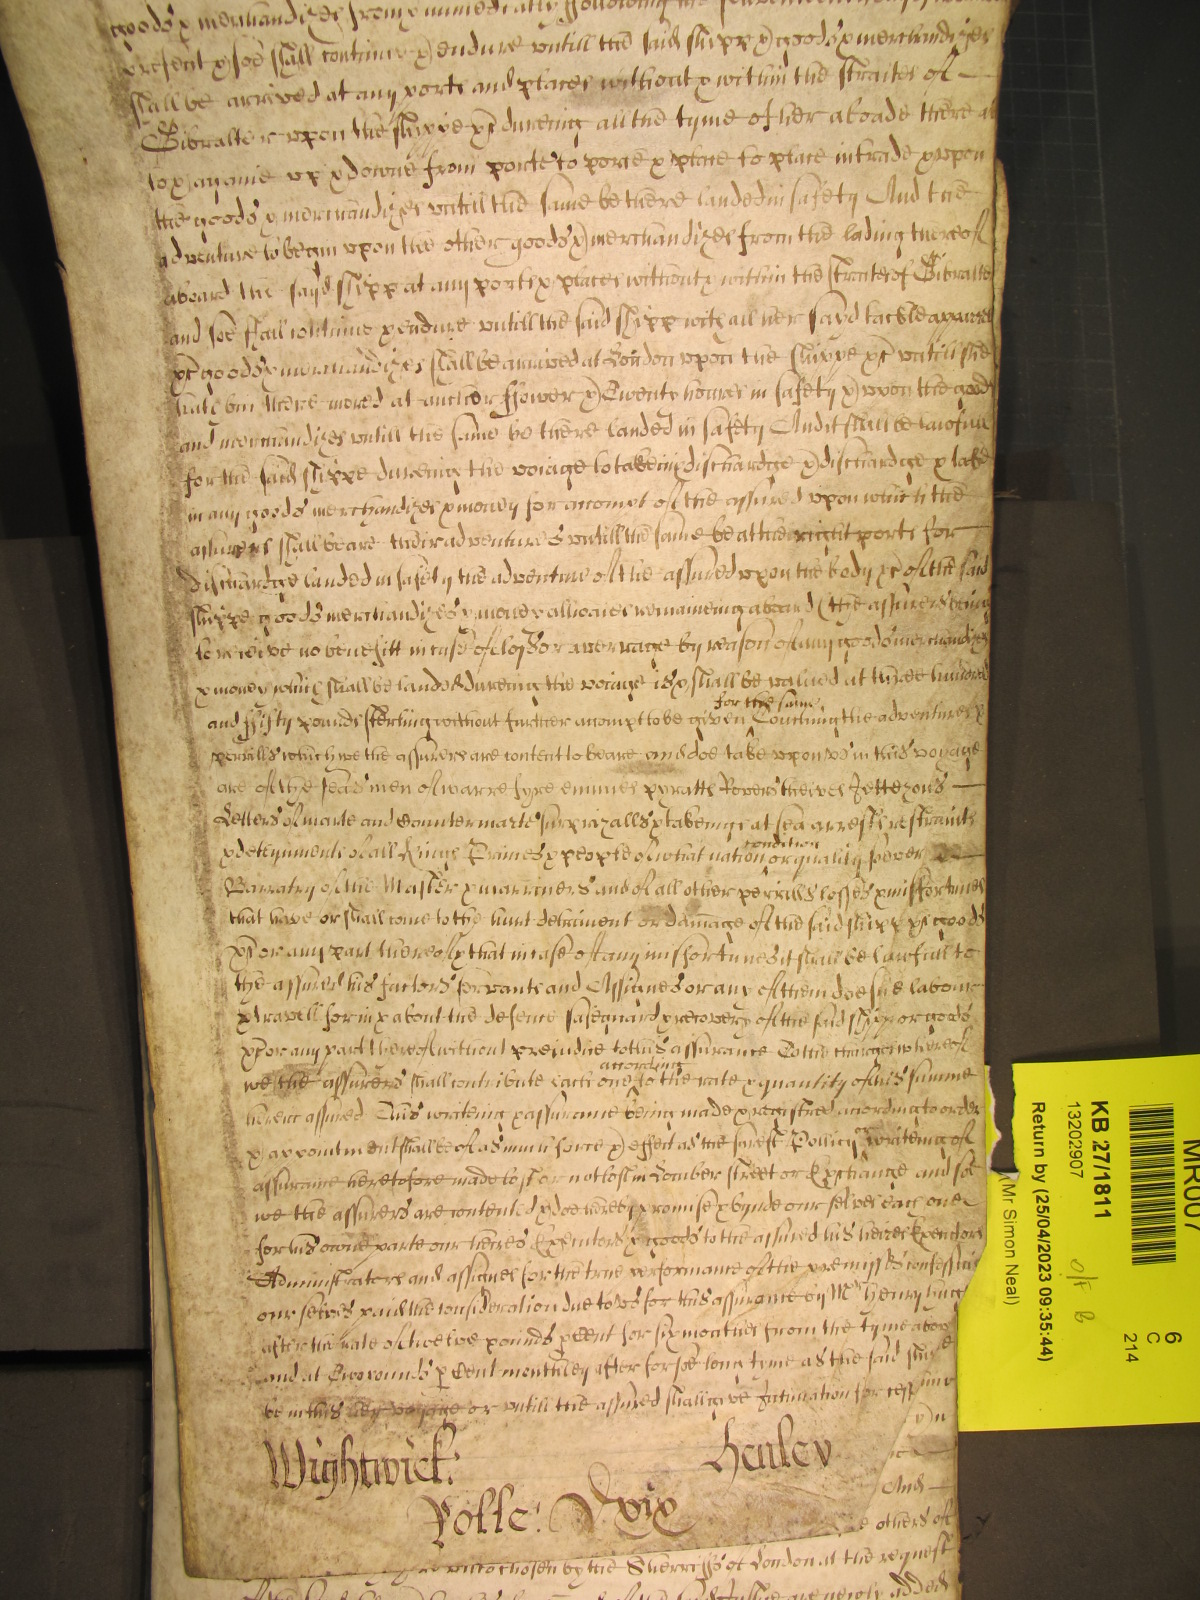 goods & merchandizes from & immediatly following the
present & soe shall continue & endure untill the said shippe & goods & merchandizes
shall be arrived at any ports and places without & within the straites of
Gibralter upon the shippe &c dureing all the tyme of her aboade there at
to & againe up & downe from porte to porte & place to place in trade & upon
the goods & merchandizes untill the same be there landed in safety And the
adventure to begin upon the other goods & merchandizes from the lading thereof
aboard the sayd shipp at any ports & places without & within the straites of Gibralter
and soe shall continue & endure untill the said shipp with all her sayd tackle apparell
&c goods & merchandizes shall be arrived at London upon the shippe &c untill she
hath bin there mored at anchor ffower & Twenty houres in safety & upon the goods
and merchandizes untill the same be there landed in safety And it shall be lawfull
for the said shippe dureing the voiage to take in & dischardge & dischardge & take
in any goods merchandizes & money for accompt of the assured upon which the
assurers shall beare their adventures untill the same be at the right ports for
dischardge landed in safety the adventure of the assured upon the body &c of the said
shippe goods merchandizes & money allwaies remaineing aboard (the assurers being
to receive no benefitt in case of losse or averrage by reason of any goods merchandizes
& money which shall be landed dureing the voiage is & shall be valued at three hundred
for the same
and ffifty pounds sterling without further accompt to be given Touching the adventures &
perrills which we the assurers are content to beare and doe take upon us in this voyage
are of the seas men of warre fyre enimies pyratts Rovers theeves Jettezons
Letters of marte and Countermarte surprizalls & takeings at sea arrests restraints
condition
& deteynments of all Kings Princes & people of what nation or quality soever
Barratry of the Master & marriners and of all other perrills losses & misfortunes
that have or shall come to the hurt detriment or damage of the said shipp &c goods
&c or any part thereof & that in case of any misfortunes it shall be lawfull to
the assured his factors servants and Assignes or any of them to sue labour
& travell for in & about the defence safeguard & recovery of the said shipp or goods
&c or any part thereof without prejudice to this assurance To the charges whereof
according
we the assurers shall contribute each one to the rate & quantity of his summe
herein assured This writeing & assurance being made & registred according to order
& appointment shall be of as much force & effect as the surest Pollicy or writeing of
assurance heretofore made lost or not lost in Lomber street or Exchange and soe
we the assurers are contented & doe hereby promise & bynde our selves each one
for his owne parte our heires Executors & goods to the assured his heires Executors
Administrators and assignes for the true performance of the premisses confessing
our selves paid the consideration due to us for this assurance by Mr Henry
after the rate of twelve pounds p cent for six moneths from the tyme above
and at Two pounds p Cent monthley after for soe long tyme as the said shippe
be in this her voyage or untill the assured shall give Intimation for
Wightwick: Henley
Rolle: Dxix
And
others of
chosen by the Sherriffs of London at the request
are newly added
MR007
6
C
214
KB 27/1811
13202907
Return by (25/04/2023 09:35:44)
(Mr Simon Neal)